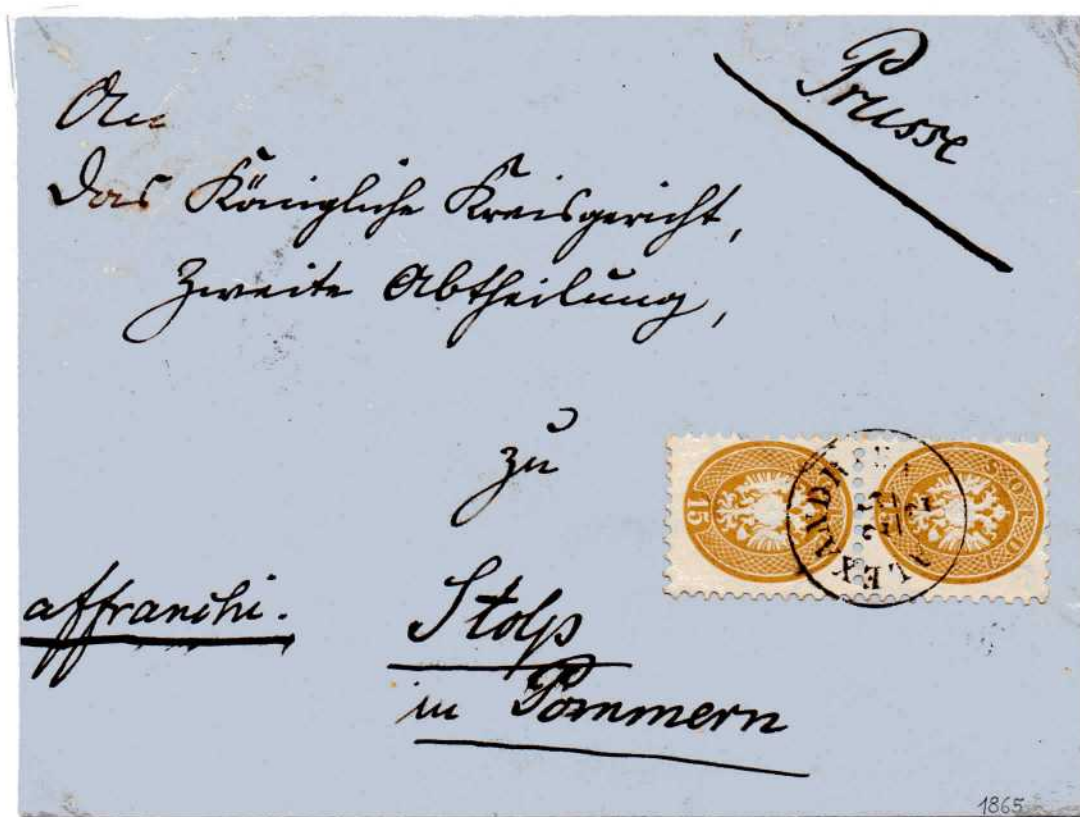 Prusse
An
das Königliche Kreisgericht,
Zweite Abtheilung,
zu
affranchi.
Stolp
in Pommern
15
15 SOLDI
ALEXANDRIEN
1865